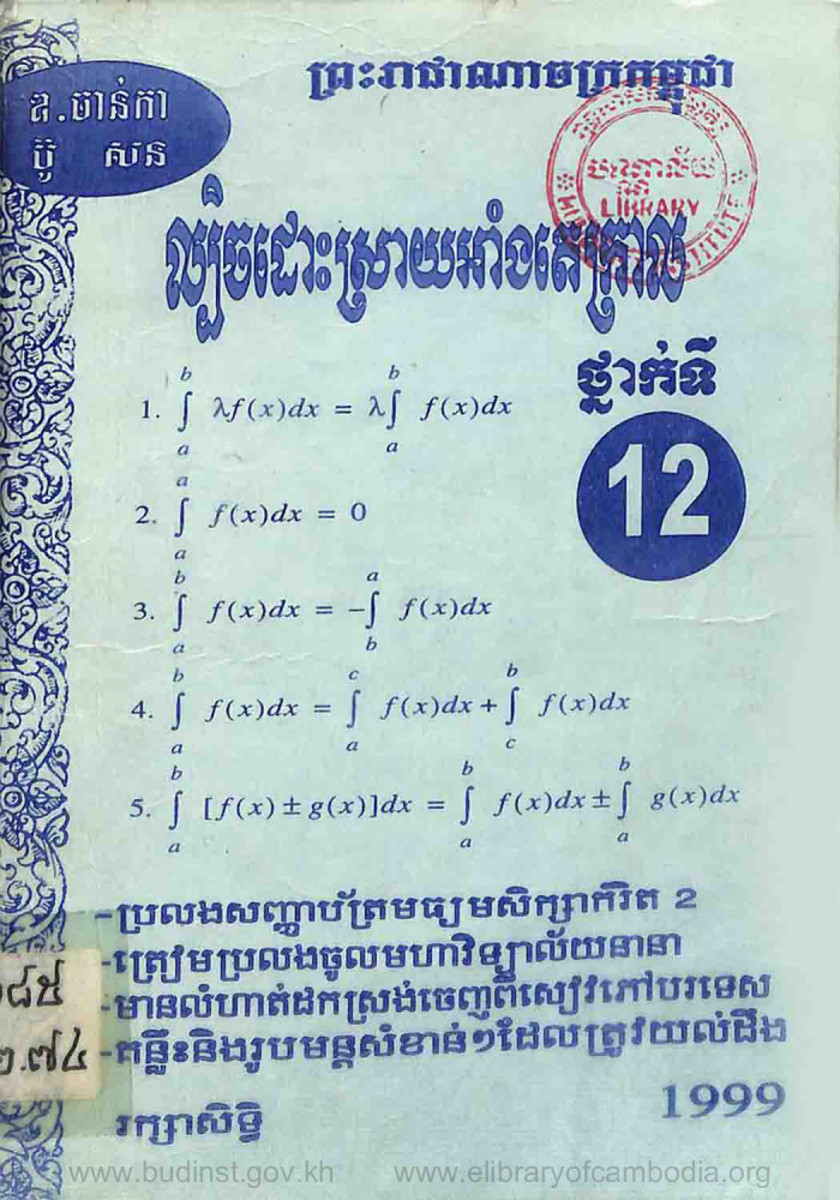 ព្រះរាជាណាចក្រកម្ពុជា
ឌ.ចាន់កា
ប៊ូ សន
បណ្ណាល័យ
LIBRARY
ល្បិចដោះស្រាយអាំងតេក្រាល
ថ្នាក់ទី
12
1. ∫_a^b λf(x)dx = λ∫_a^b f(x)dx
2. ∫_a^a f(x)dx = 0
3. ∫_a^b f(x)dx = -∫_b^a f(x)dx
4. ∫_a^b f(x)dx = ∫_a^c f(x)dx + ∫_c^b f(x)dx
5. ∫_a^b [f(x) ± g(x)]dx = ∫_a^b f(x)dx ± ∫_a^b g(x)dx
-ប្រលងសញ្ញាប័ត្រមធ្យមសិក្សាកំរិត 2
-ត្រៀមប្រលងចូលមហាវិទ្យាល័យនានា
-មានលំហាត់ដកស្រង់ចេញពីសៀវភៅបរទេស
-គន្លឹះនិងរូបមន្តសំខាន់ៗដែលត្រូវយល់ដឹង
រក្សាសិទ្ធិ
1999
www.budinst.gov.kh www.elibraryofcambodia.org